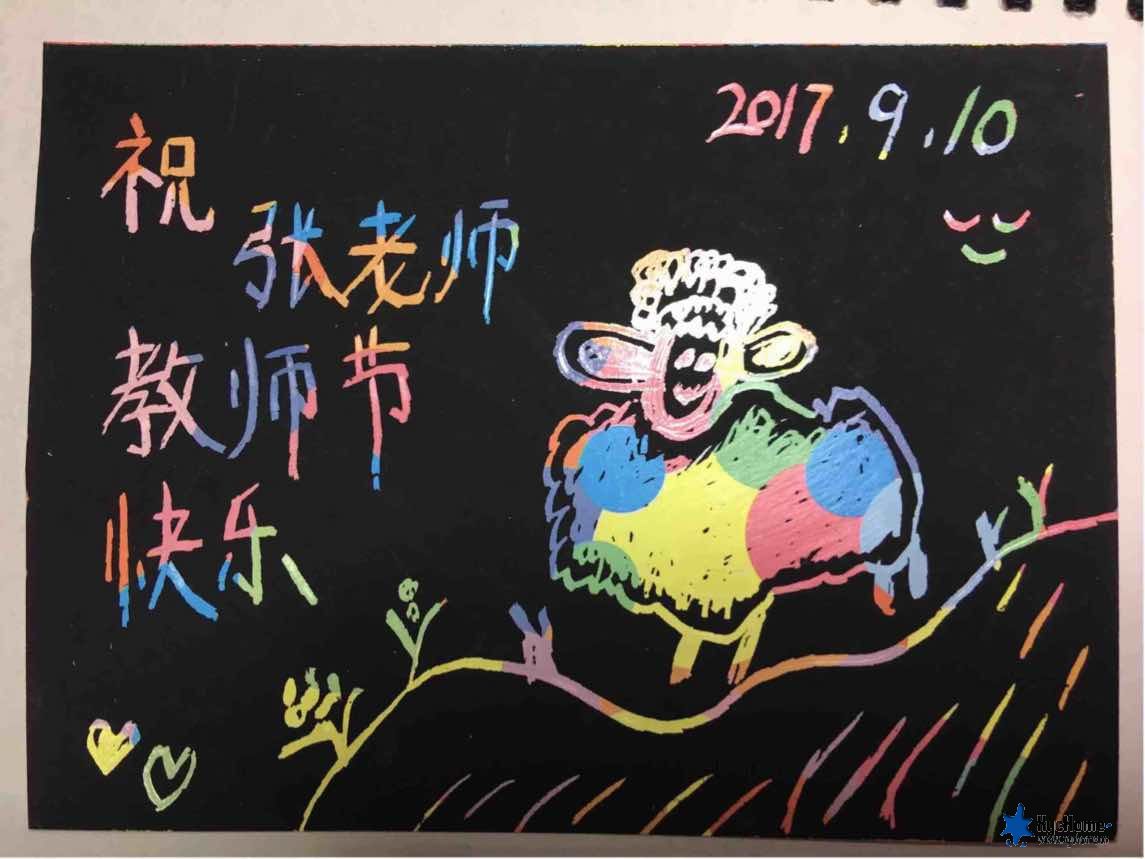 2017.9.10
祝
张老师
教师节
快乐